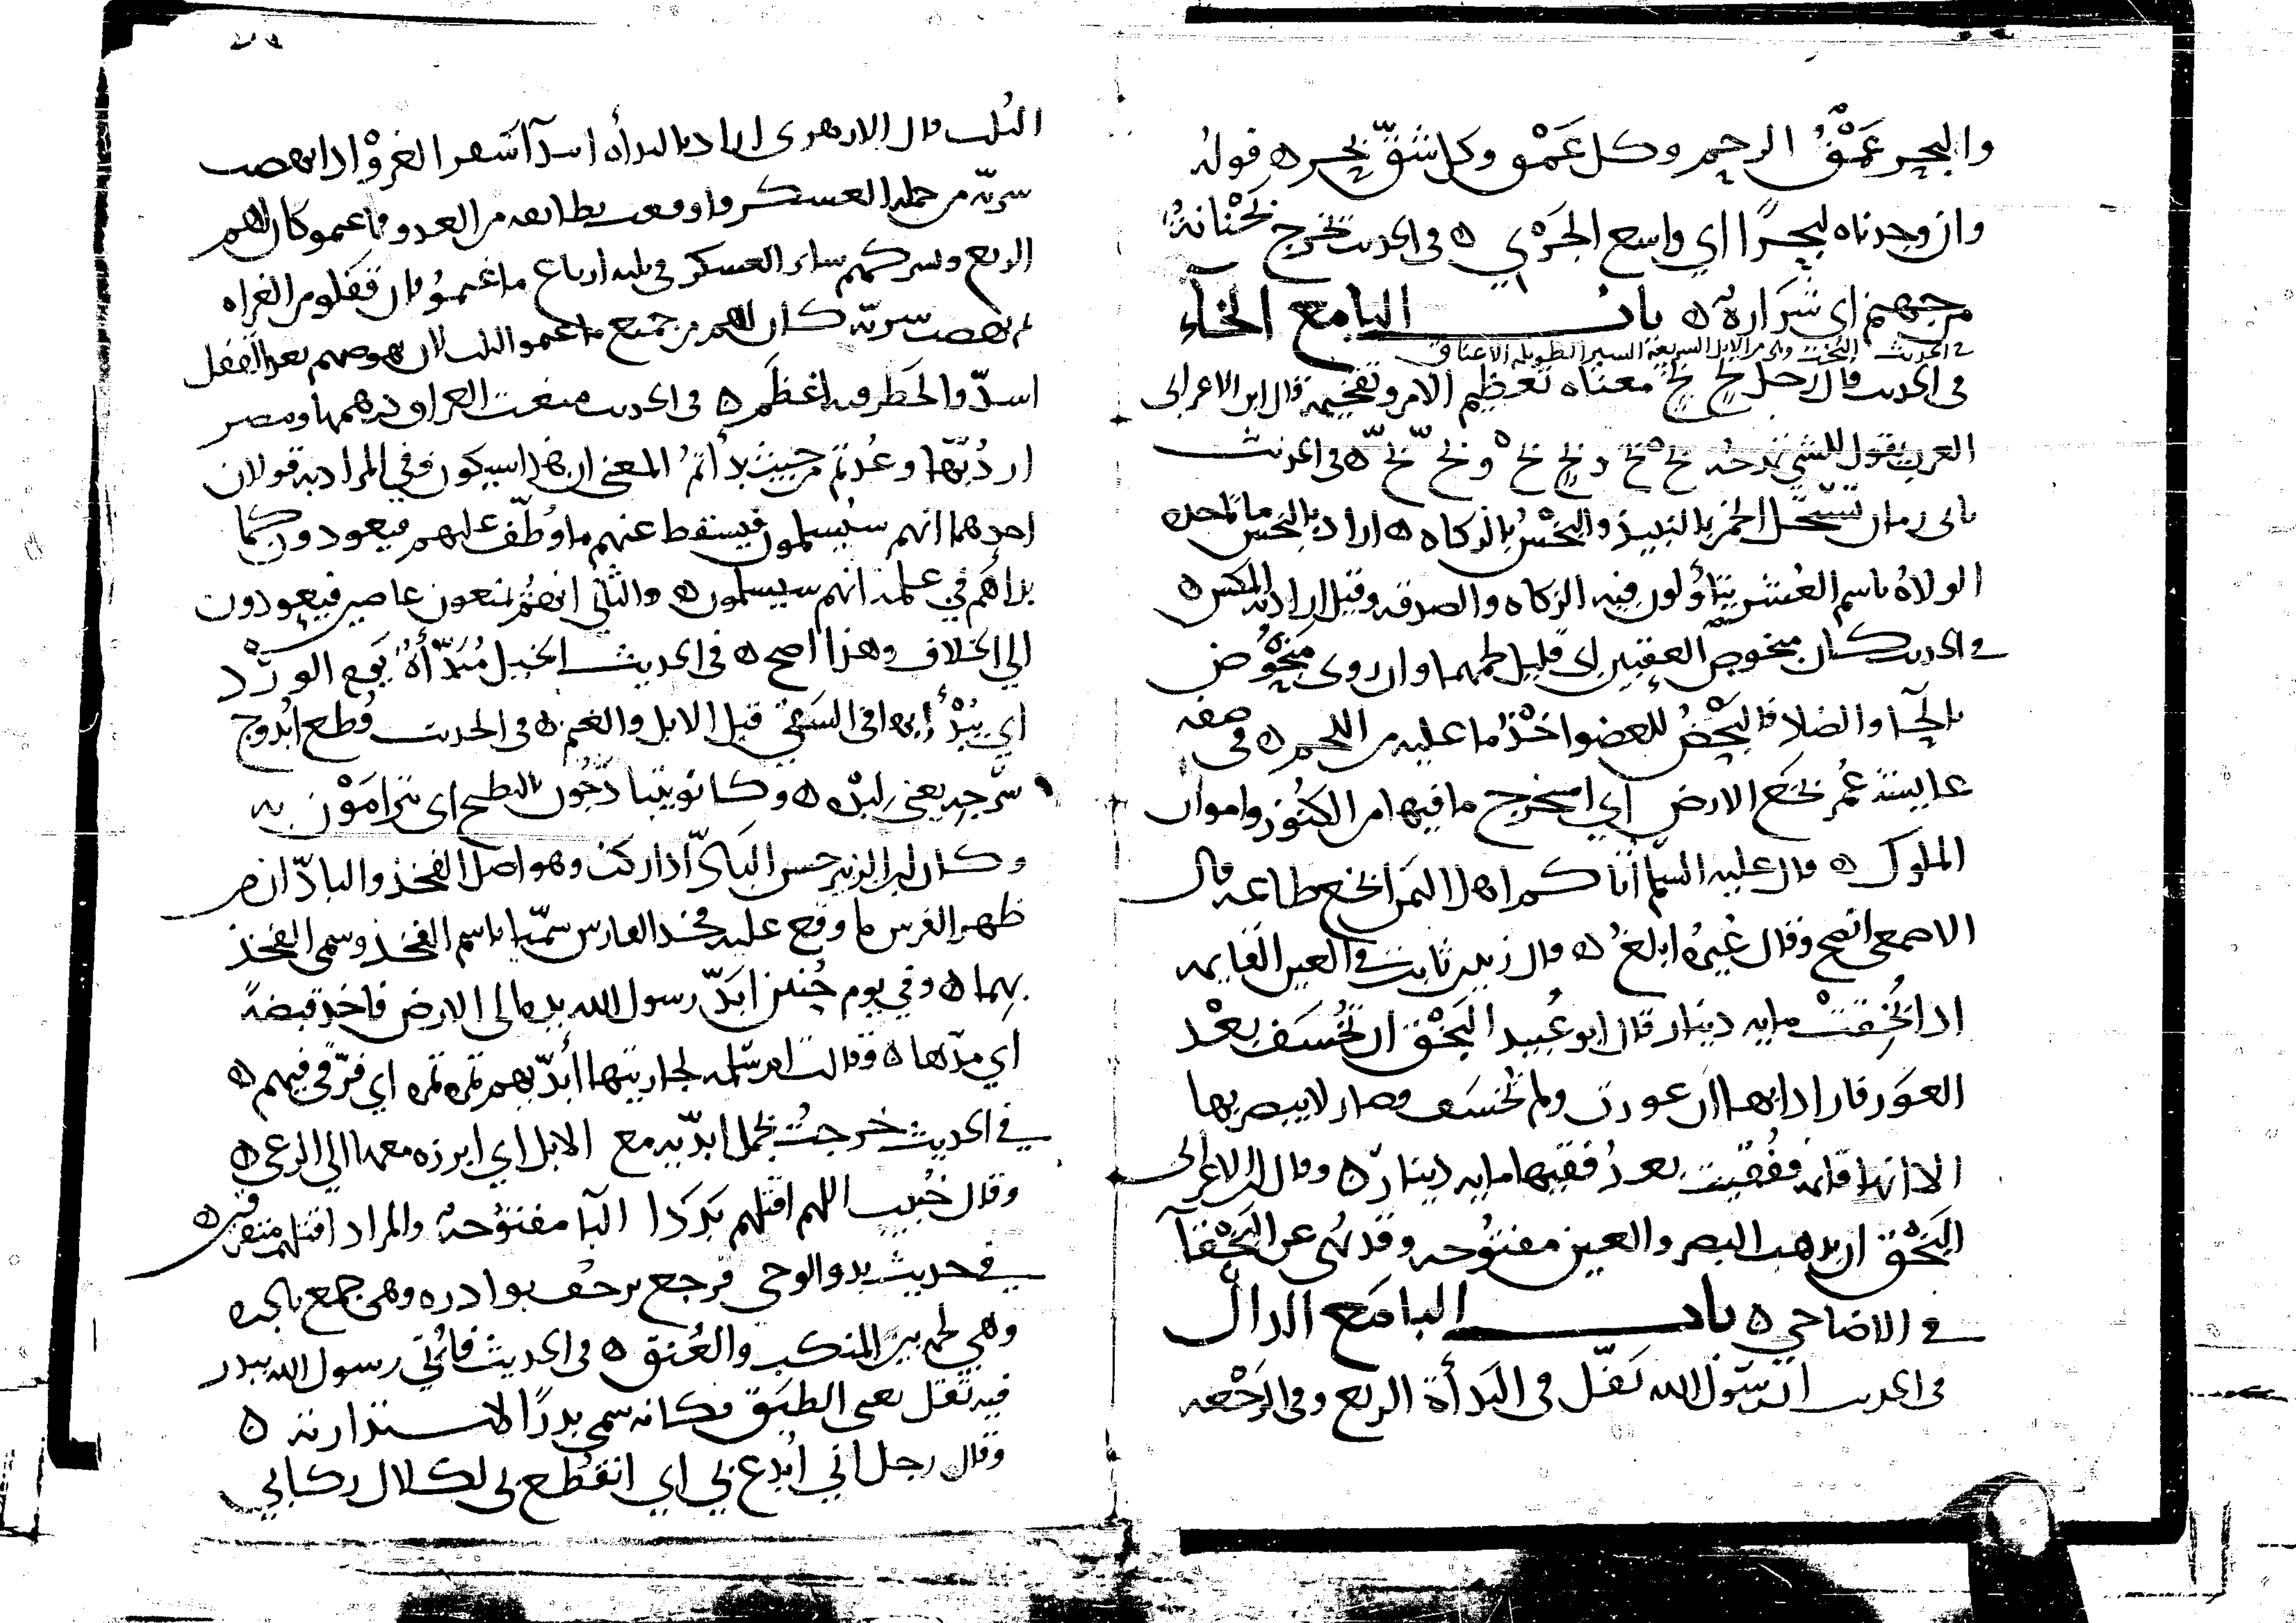 والبحر عمق الرحم وكل عمق وكل شق بحر ه قوله
وان وجدناه لبحرًا اي واسع الجري ه في الحديث تخرج بخنانة
من جهنم اي شرارة ه باب البا مع الخاء
في الحديث البخت وهي من الابل السريعة السير الطويلة الاعناق
في الحديث قال رجل بخ بخ معناه تعظيم الامر وتفخيمه قال ابن الاعرابي
العرب تقول للشيء تمدحه بخْ بخْ وبخٍ بخْ وبخّ بخّ ه في الحديث
ياتي زمان تستحل الخمر بالنبيذ والبخْسُ بالزكاه ه اراد بالبخس ما ياخذه
الولاةُ باسم العُشر يتأولون فيه الزكاه والصدقه وقيل اراد به المكس ه
في الحديث كان مبخوص العقبين اي قليل لحمهما وان روى منحوض
بالحا والضاد فالنحض للعضو اخذ ما عليه من اللحم ه في صفه
عايشة عُمر بَخَع الارض اي استخرج ما فيها من الكنوز واموال
الملوك ه قال عليه السلم اتاكم اهل اليمن ابخع طاعه قال
الاصمعي انصح وقال غيرُه ابلغ ه قال زيد بن ثابت في العين القايمه
اذا بُخِقَتْ مايه دينار قال ابو عُبيد البَخْق ان تُخسَف بعْد
العوَر فاراد انها ان عورت ولم تخسف فصار لا يبصر بها
الا انها قايمه ففُقيت بعدُ ففيها مايه دينار ه وقال ابن الاعرابي
البَخْق ان يذهب البصر والعين مفتوحه وقد نُهي عن البَخْقآ
في الاضاحي ه باب البا مع الدال
في الحديث ان رسول الله نَفّل في البَدأة الربع وفي الرَجْعه
الثلث قال الازهري اراد بالبدأه ابتدآ سفر الغزْو اذا نهضت
سريّه من جمله العسكر فاوقعت بطايفه من العدو فما غنموا كان لهم
الربع ويشركهم ساير العسكر في ثلثه ارباع ما غنموُ فان قفلو من الغزاه
ثم نهضت سريّه كان لهم من جميع ما غنموا الثلث لان نهوضهم بعد القفل
اشدّ والخطر فيه اعظم ه في الحديث منعت العراق درهمها ومصر
اردُبّها وعُدتم من حيث بدأتمُ المعنى ان هذا سيكون وفي المراد به قولان
احدهما انهم سيُسلمون فيسقط عنهم ما وُظّف عليهم فيعودون كما
بداهم في علمه انهم سيسلمون ه والثاني انهُم يمنعون عاصين فيعودون
الى الخلاف وهذا اصح ه في الحديث الخيل مُبَدّأةٌ يوم الوِرْد
اي يُبْدأُ بها في السَقي قبل الابل والغنم ه في الحديث قُطع ابُدوج
سَرجه يعني لبْده ه وكانو يتبادَحُون بالبطيخ اي يترامَوْن به
وكان ابن الزبير حسن البَادّ اذا ركب وهو اصل الفخذ والبادّان من
ظهر الفرس ما وقع عليه فخذ الفارس سمّيا باسم الفخذ وسمي الفخذ
بهما ه وفي يوم حُنين ابَدّ رسول الله يده الى الارض فاخذ قبضةً
اي مدّها ه وقالت ام سلمه لجاريتها أبدّيهم تمره تمره اي فرّقي فيهم ه
في الحديث خرجتُ بجمل ابدّيه مع الابل اي ابرزه معها الى الرعي ه
وقال خُبيب اللهم اقتلهم بَدَدًا البآ مفتوُحةٌ والمراد اقتلهم متفرقين ه
في حديث بدو الوحي فرجع ترجُف بوادره وهي جمع بادره
وهي لحم بين المنكب والعُنق ه في الحديث فاُتي رسول الله ببدر
فيه بَقل يعني الطبق فكانه سمي بدرًا لاستدارته ه
وقال رجل اني ابُدع بي اي انقُطع بي لكلال ركابي